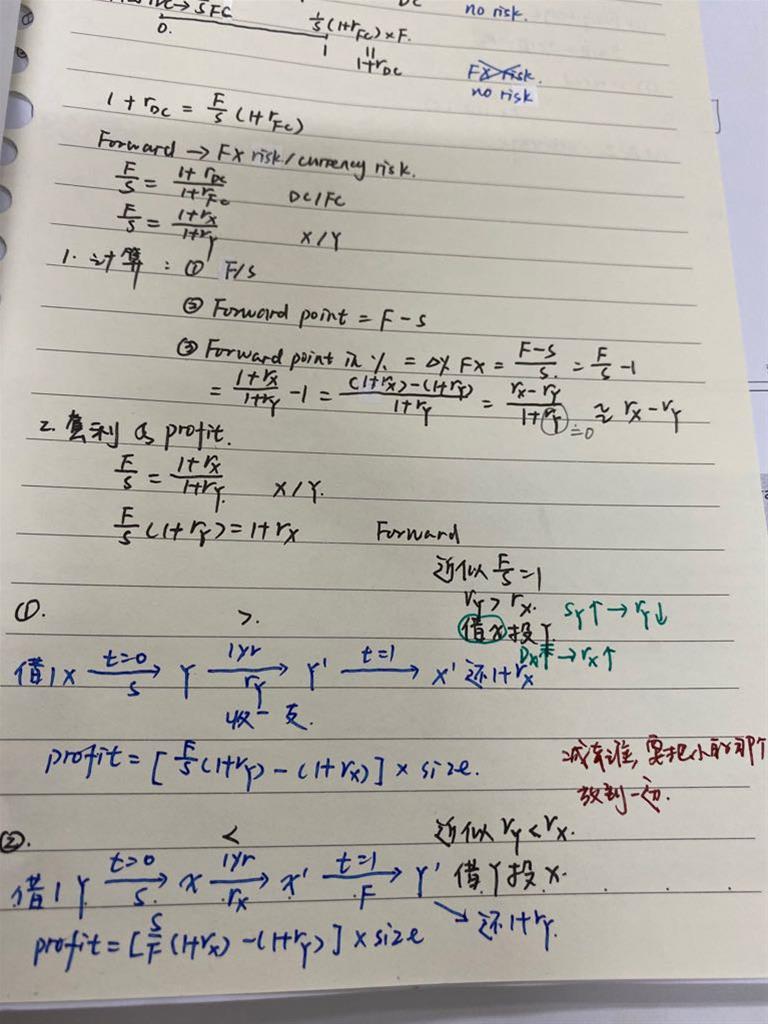 DC → S FC
DC
no risk.
0.
1/S (1+rFC) × F.
1
॥
1+rDC
FX risk.
no risk
1 + rDC = F/S (1+rFC)
Forward → FX risk/currency risk.
F/S = (1+rDC)/(1+rFC) DC/FC
F/S = (1+rX)/(1+rY) X/Y
1. 计算: ① F/S
② Forward point = F-S
③ Forward point in % = Δ% FX = (F-S)/S. = F/S -1
= (1+rX)/(1+rY) -1 = ((1+rX)-(1+rY))/(1+rY) = (rX-rY)/(1+rY) ≈ rX-rY
≐0
2. 套利 & profit.
F/S = (1+rX)/(1+rY) X/Y.
F/S (1+rY) = 1+rX Forward
近似 F/S = 1
①. >. rY > rX.
借X投Y SY↑ → rY↓
DX↑ → rX↑
借1X t=0 S → Y 1yr rY → Y' t=1 → X' 还1+rX
收-支.
profit = [F/S (1+rY) - (1+rX)] × size.
要把
放到一边.
②. < 近似 rY < rX.
借1Y t=0 S. → X 1yr rX → X' t=1 F → Y' 借Y投X.
↘ 还1+rY.
profit = [S/F (1+rX) - (1+rY)] × size